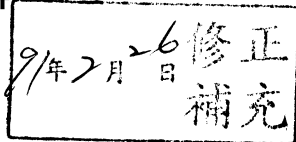 91年2月26日修正
補充